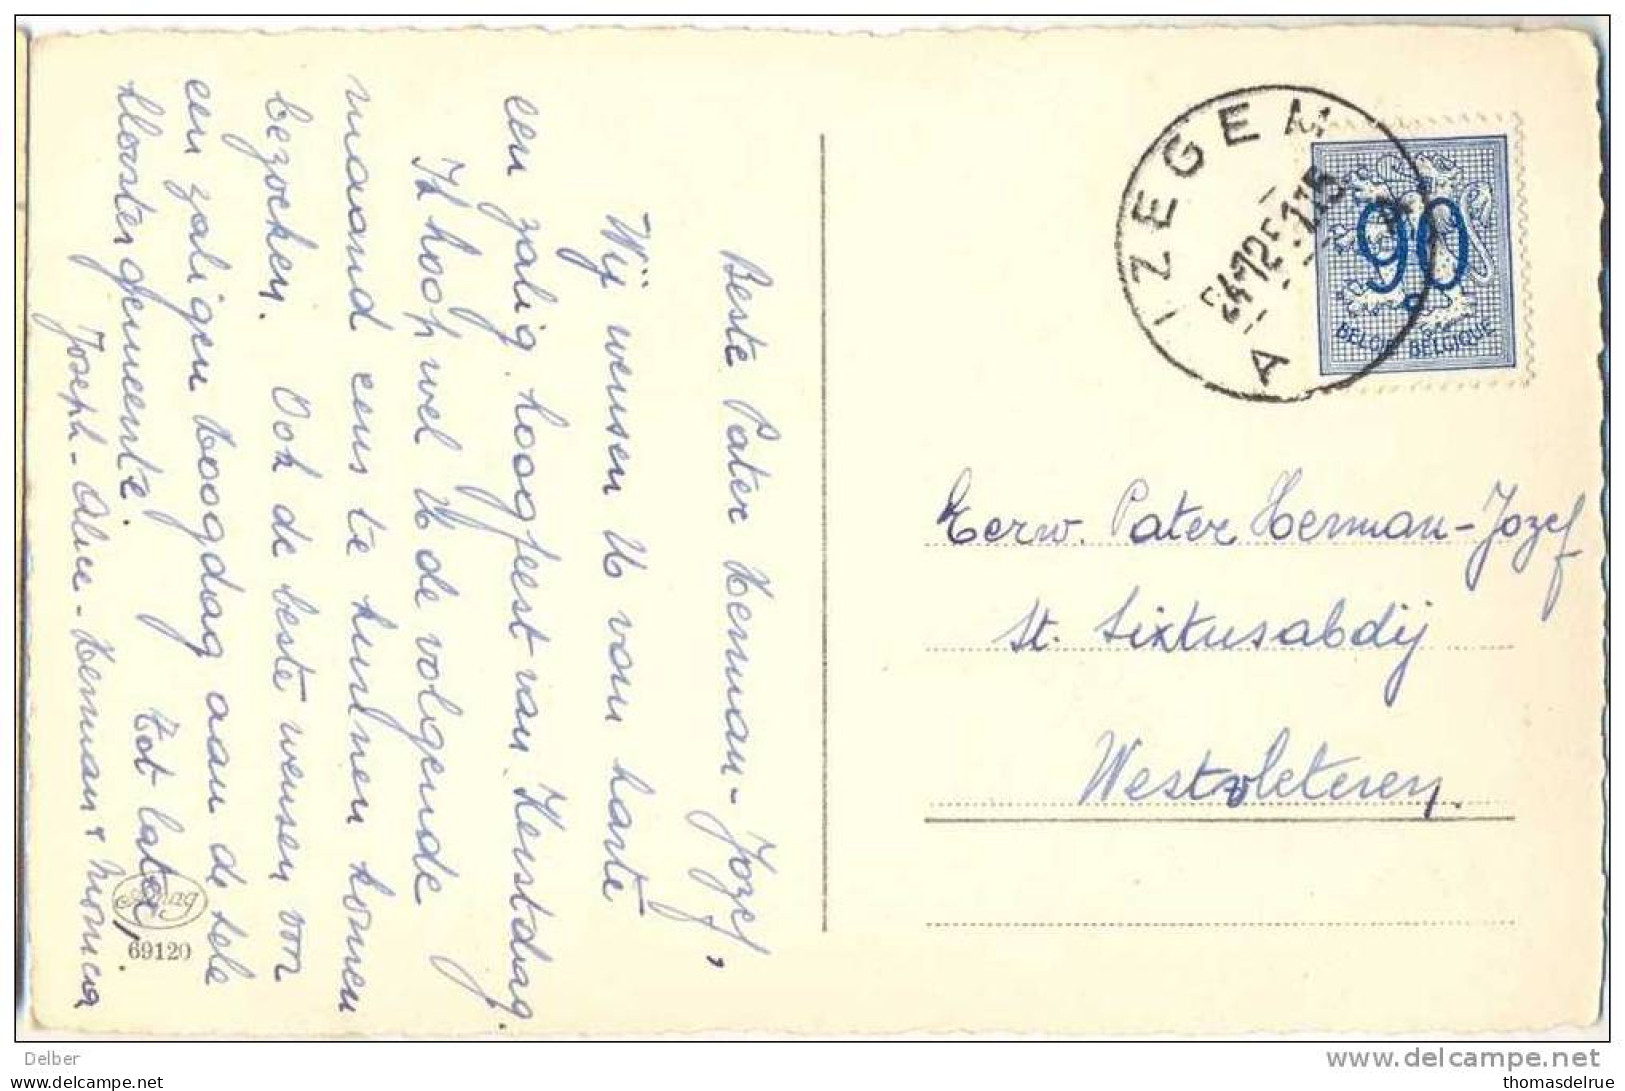 Beste Pater Herman-Jozef,
Wij wensen U van harte
een zalig hoogfeest van Kerstdag.
Ik hoop wel U de volgende
maand eens te kunnen komen
bezoeken. Ook de beste wensen voor
een zaligen hoogdag aan de hele
kloostergemeente. Tot later,
Joseph-Aline-Herman + Monica
69120
IZEGEM
A
90
BELGIE BELGIQUE
Eerw. Pater Herman-Jozef
St. Sixtusabdij
Westvleteren.
Delber
www.delcampe.net
All rights reserved
thomasdelrue